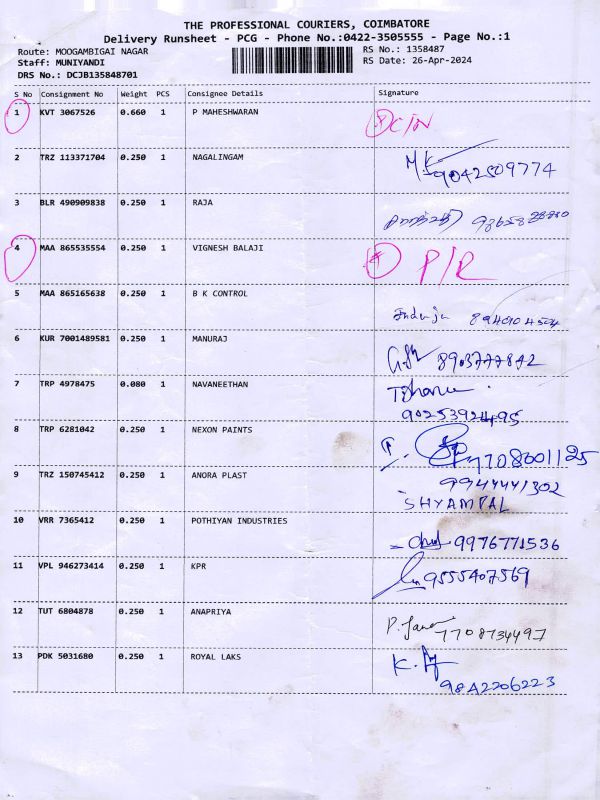 THE PROFESSIONAL COURIERS, COIMBATORE
Delivery Runsheet - PCG - Phone No.:0422-3505555 - Page No.:1
Route: MOOGAMBIGAI NAGAR RS No.: 1358487
Staff: MUNIYANDI RS Date: 26-Apr-2024
DRS No.: DCJB135848701
S No Consignment No Weight PCS Consignee Details Signature
1 KVT 3067526 0.660 1 P MAHESHWARAN
2 TRZ 113371704 0.250 1 NAGALINGAM
9042509774
3 BLR 490909838 0.250 1 RAJA
4 MAA 865535554 0.250 1 VIGNESH BALAJI P/R
5 MAA 865165638 0.250 1 B K CONTROL
Induja
6 KUR 7001489581 0.250 1 MANURAJ
8903777842
7 TRP 4978475 0.080 1 NAVANEETHAN
9025392495
8 TRP 6281042 0.250 1 NEXON PAINTS
7708001125
9 TRZ 150745412 0.250 1 ANORA PLAST 9944441302
SHYAMPAL
10 VRR 7365412 0.250 1 POTHIYAN INDUSTRIES
9976771536
11 VPL 946273414 0.250 1 KPR
9555407569
12 TUT 6804878 0.250 1 ANAPRIYA
7708734497
13 PDK 5031680 0.250 1 ROYAL LAKS
9842206223